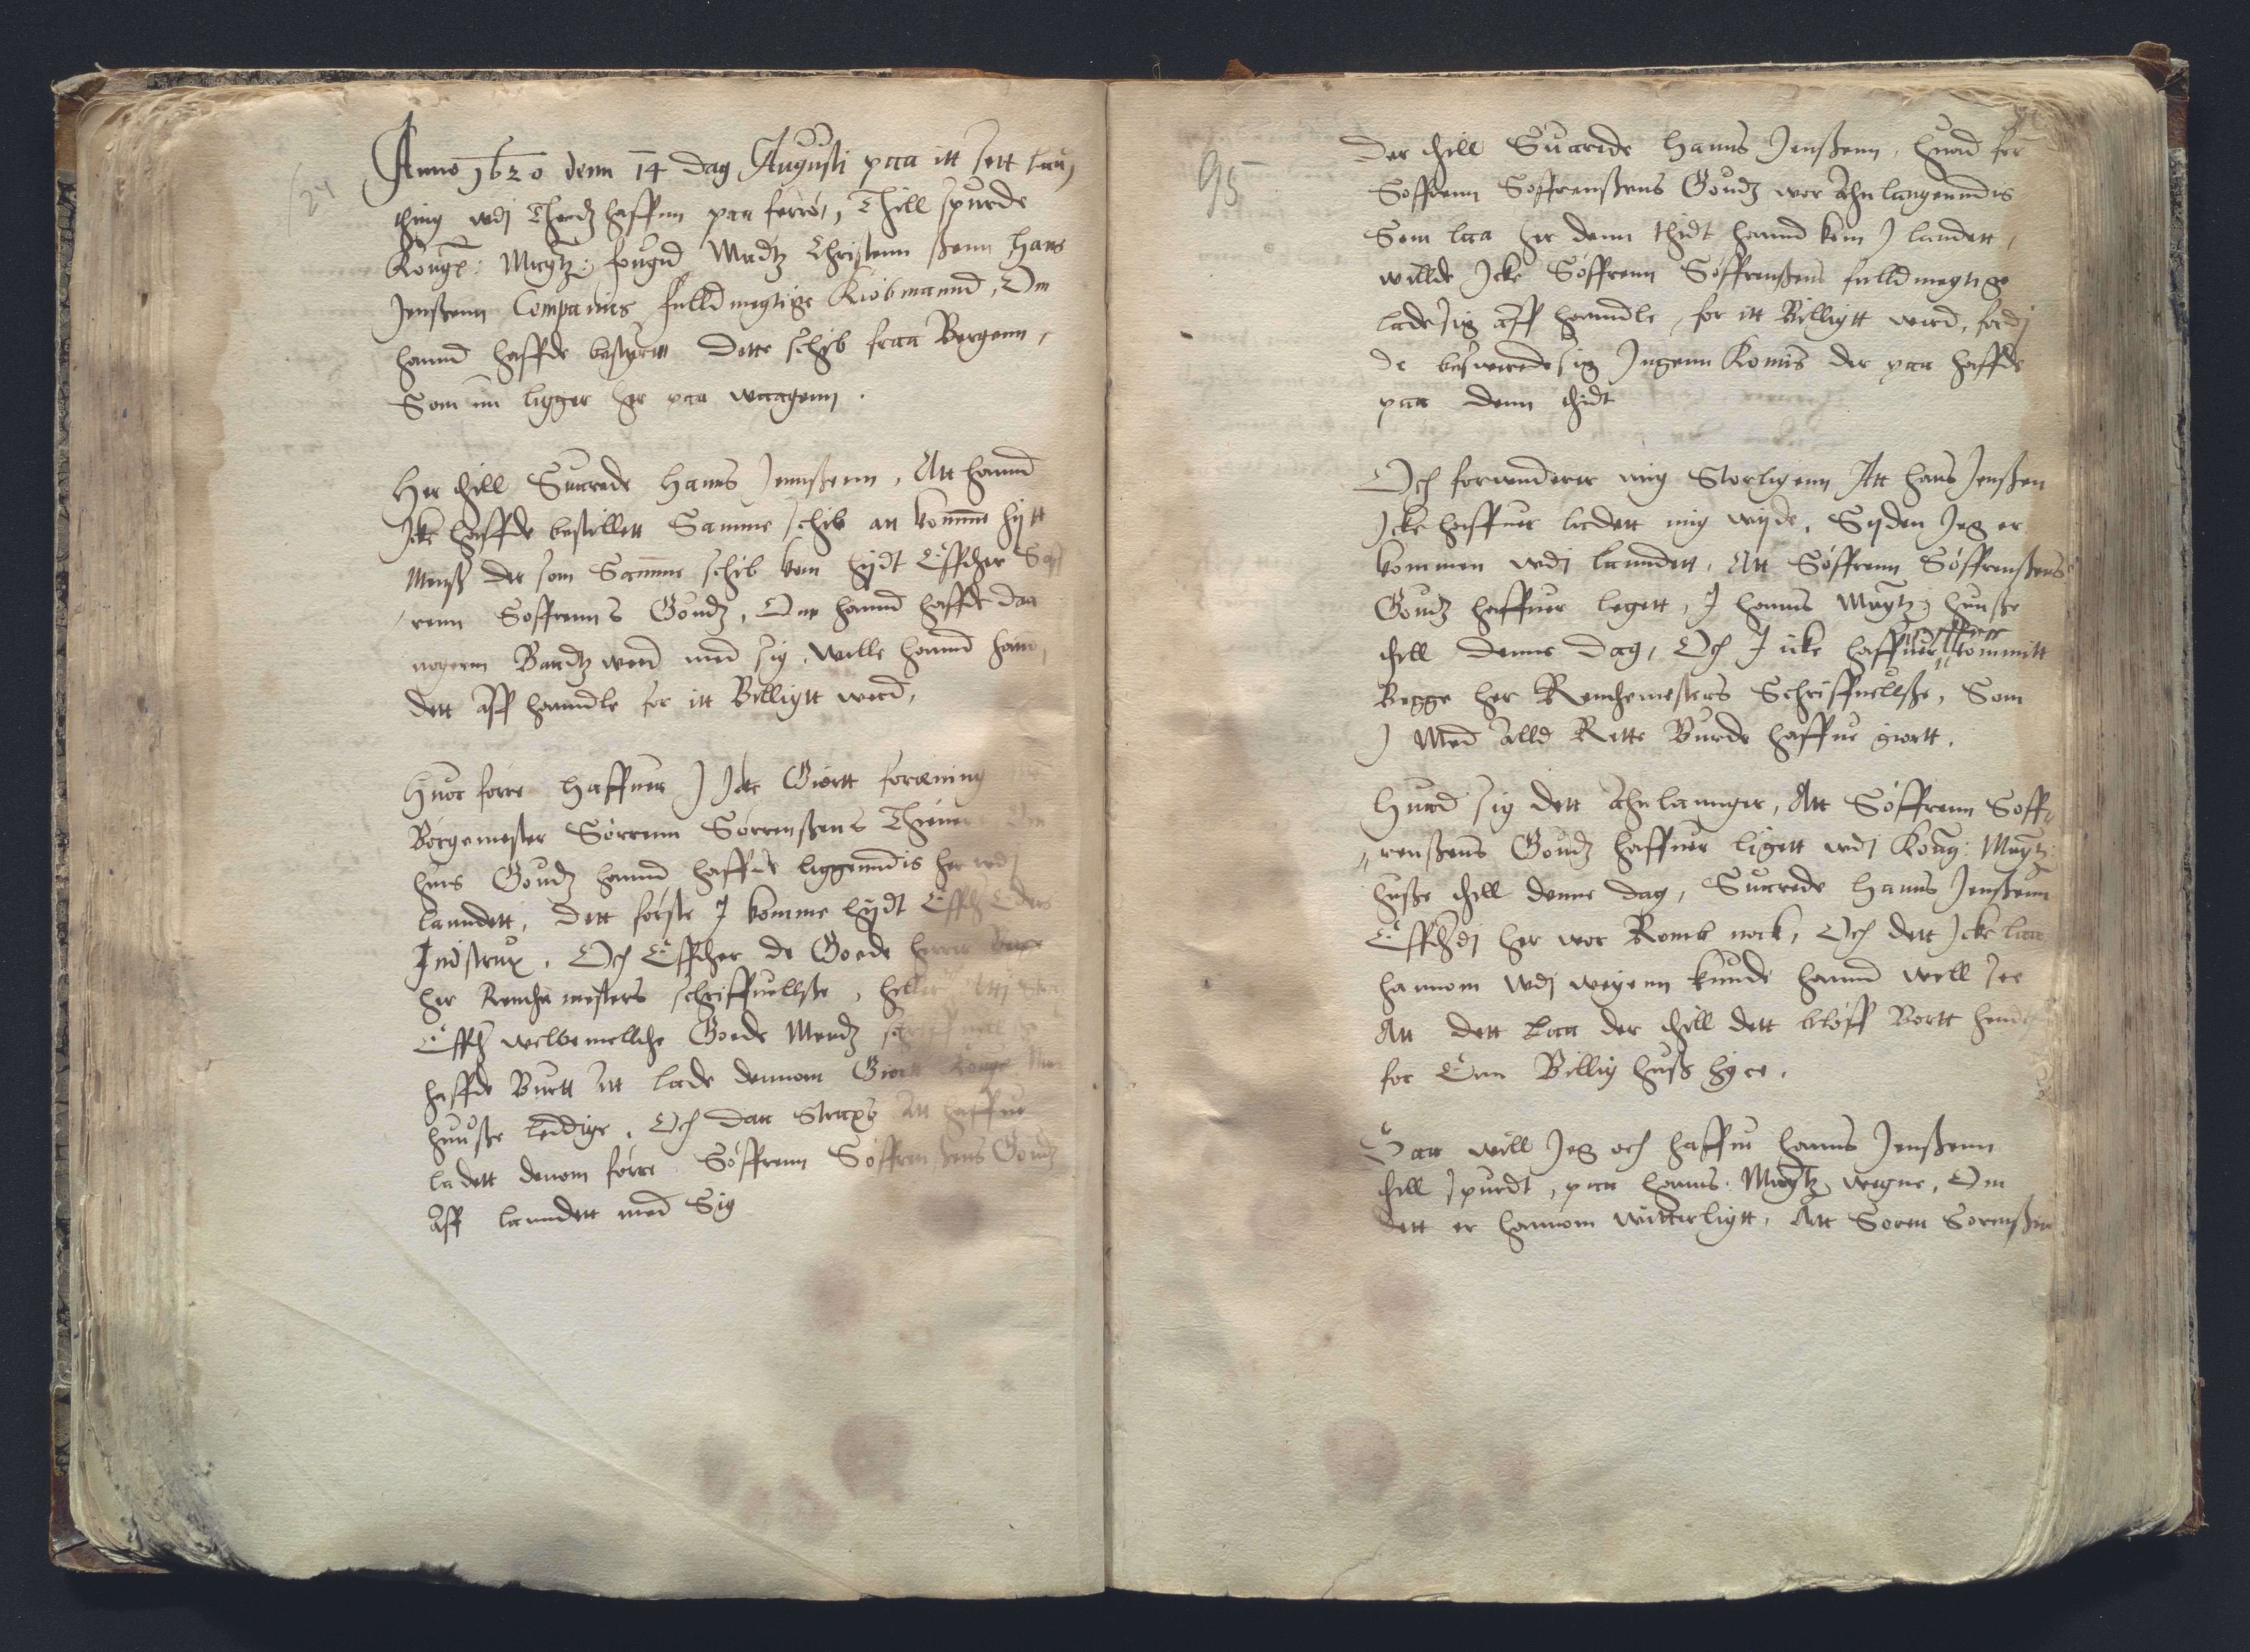 124
Anno 1620 denn 14 dag Augusti paa itt sett lau,
thing wdj Thordz haffnn paa ferrøe, Thill spurde
Kongl: Maytz: fougid Madtz Christennßenn Hans
Jenßenn Companies fulldmegtige Kiøbmannd, Om
hannd haffde bestyrtt dette schib fraa Bergenn,
Som nu ligger her paa waagenn.
Her thill Suarede Hanns Jennßenn, Att hannd
Icke haffde bestillett Samme schib att komme hijtt
Menß der som Samme schib kom hijdt Effther Søff
renn Søffrenns Goudz, Om hannd haffde daa
nogenn Bardtz werd med sig, wille hannd hann,
dett aff hanndle for itt Billigtt werd,
Huor forre haffuer J Icke Giørtt foræning
Borgemester Sørrenn Sørrenßens Thienere Om
hans Goudz hannd haffde liggenndis her wdj
lanndett, dett første J komme hijdt Effth Eders
Indstrux. Och Effther de Goede herrer
her Renthe mesters schriffuellße, heller
Effth welbemellthe Goede Mendz schriffuel
haffde Burtt att lade dennom Giørtt Konge
huuße leddige, Och daa Straxs att haffue
ladett denom førre Søffrenn Søffrenßens Goudz
aff lanndett med Sig
95
Der thill Suarede Hanns Jenßenn, huad for
Søffrenn Søffrenßens Goudz wor ahnlangenndis
Som laa her denn thidt hannd kom J landett,
willde Icke Søffrenn Søffrenßens fulldmegtige
lade sig aff hanndle, for itt Billigtt werd, fordj
de besuerede sig Ingenn Komis der paa haffde
paa denn thidt
Och forwnderer mig Storligenn Att Hans Jenßen
Icke haffuer ladett mig wijde, Syden Jeg er
kommen wdj lanndett, Att Søffrenn Søffrenßens
Goudz haffuer legett, J hanns Maytz: hunße
thill denne dag, Och J icke haffuer effther kommitt
Begge her Renthemesters Schriffuellße, Som
J Med alld Rette Burde haffue giortt.
Huad sig dett ahnlannger, Att Søffrenn Søff,
renßens Goudz haffuer ligett wdj Kong: Maytz:
huße thill denne dag, Suarede Hanns Jenßenn
Effthdj her wor Romb nock, Och dett Icke laa
hannom wdj weyenn kunde hannd well see
Att dett laa der thill dett bløff Bortt hendt
for Enn Billig huß hyre.
Daa will Jeg och haffue hanns Jenßenn
thill spurdt, paa hanns Maytz wegne, Om
dett er hannom witterligtt, Att Soren Sorenßen